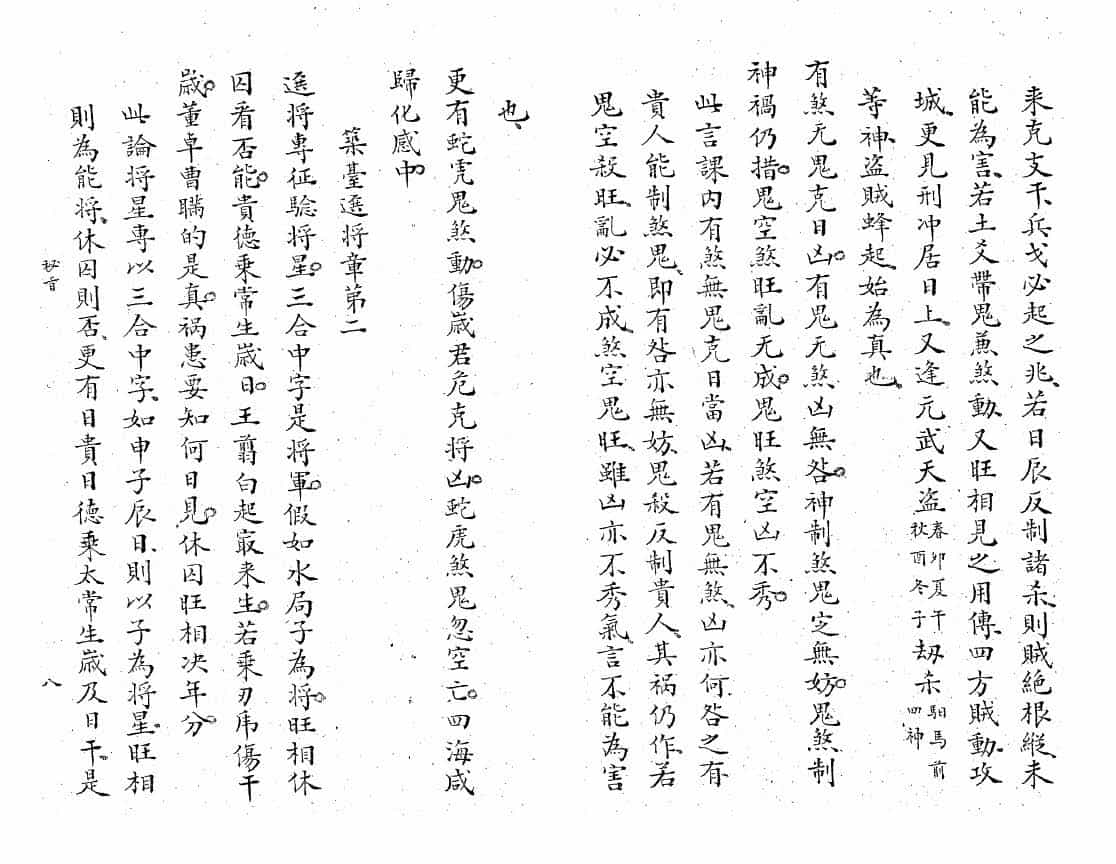 来克支干、兵戈必起之兆、若日辰反制諸杀、則賊絶根縱未
能為害、若土爻帶鬼兼煞動、又旺相見之用傳、四方賊動、攻
城、更見刑冲居日上、又逢元武天盗春卯夏午秋酉冬子劫杀馹馬前四神
等神、盗賊蜂起、始為真也、
有煞无鬼克日凶。有鬼无煞凶無咎。神制煞鬼定無妨。鬼煞制
神禍仍措。鬼空煞旺亂无成。鬼旺煞空凶不秀。
此言課内有煞無鬼克日當凶、若有鬼無煞、凶亦何咎之有
貴人能制煞鬼、即有咎亦無妨、鬼殺反制貴人、其禍仍作、若
鬼空殺旺、亂必不成、煞空鬼旺、雖凶亦不秀氣、言不能為害
也、
更有蛇虎鬼煞動。傷歲君危克将凶。蛇虎煞鬼忽空亡。四海咸
歸化感中。
築臺選将章第二
選将專征驗将星。三合中字是将軍。假如水局子為将。旺相休
囚看否能。貴德乘常生歲日。王翦白起㝡来生。若乘刃虎傷干
歲。董卓曹瞞的是真。禍患要知何日見。休囚旺相决年分。
此論将星專以三合中字、如申子辰日、則以子為将星、旺相
則為能将、休囚則否、更有日貴日德乘太常生歲及日干、是
秘旨
八